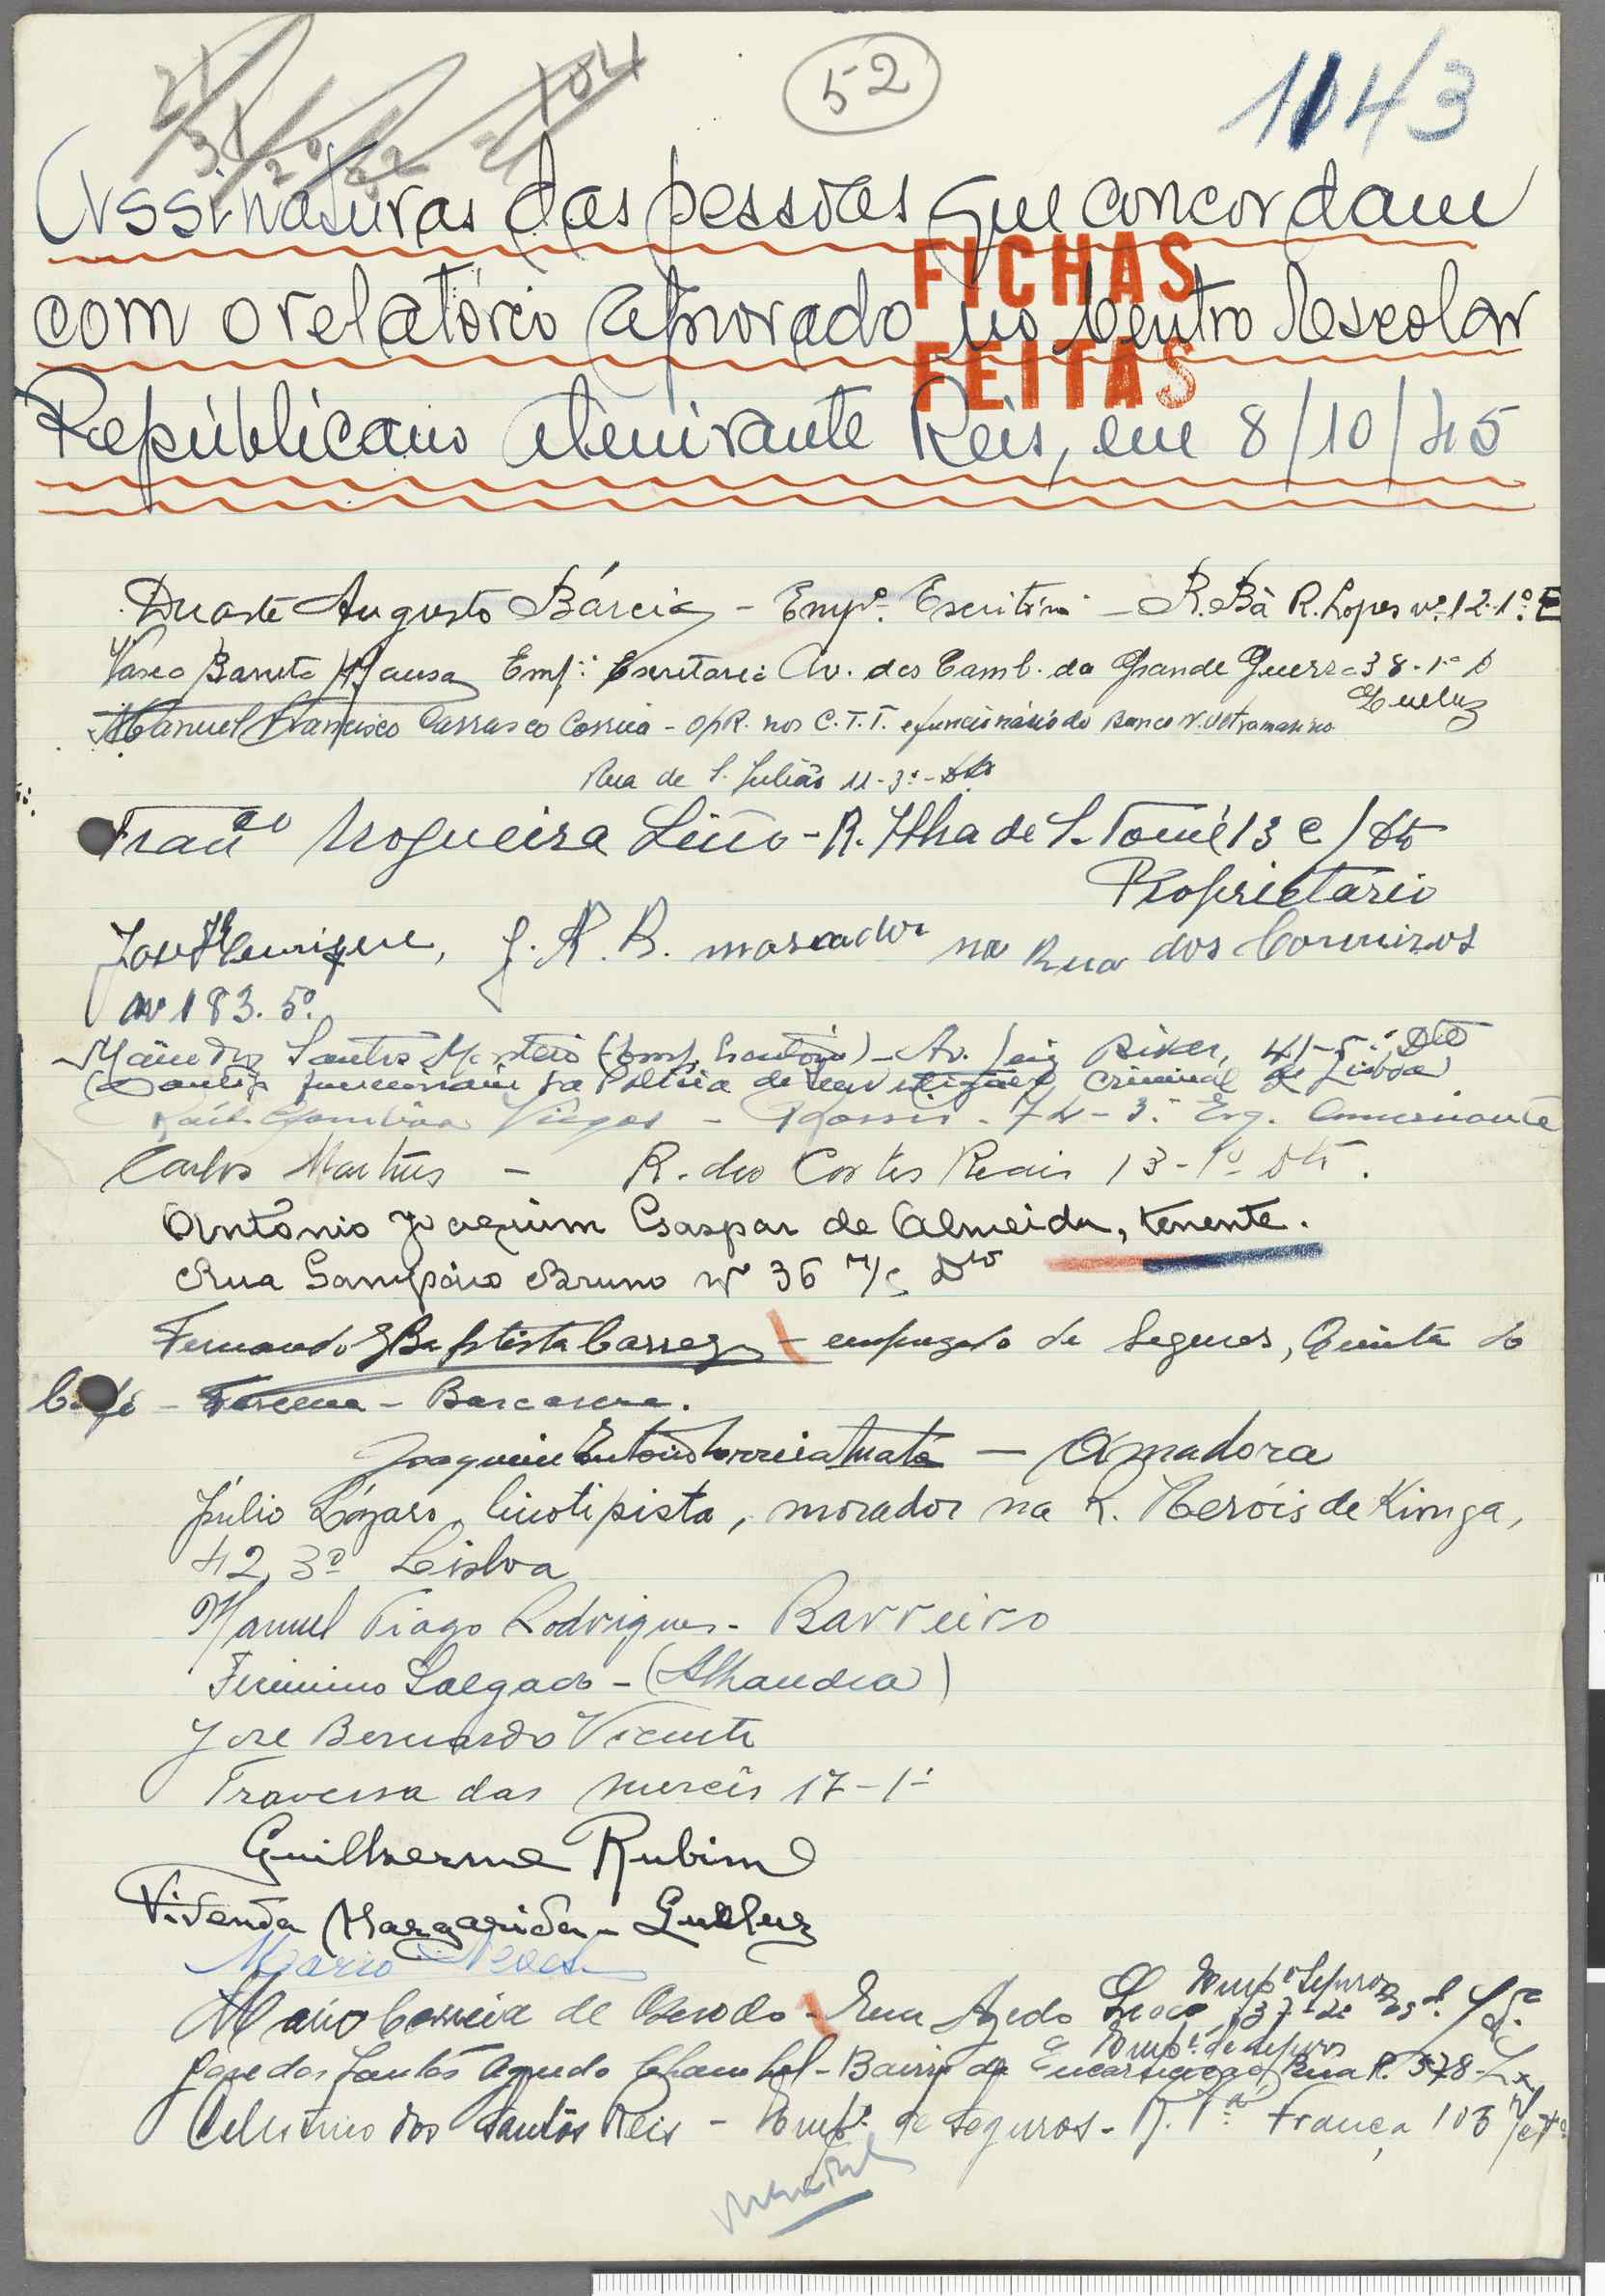 52
1143
Assinaturas das pessoas que concordam
com o relatório aprovado no Centro Escolar
Repúblicano Almirante Reis, em 8/10/45
FICHAS
FEITAS
Duarte Augusto Bárcia - Empº. Escritório - R. Bª R. Lopes nº. 12-1º E
Vasco Barreto Empº. Escritorio Av. dos Comb. da Grande Guerra 38-1º D
Queluz
Manuel Francisco Carrasco Correia - Op R. nos C.T.T. e funcionário do Banco N. Ultramarino
Rua de S. Julião 11-3º-Dto
Franco Nogueira Liño - R. Ilha de S. Tomé 13 C/Dto
Proprietário
José Henrique, J. R. R. morador na Rua dos Correeiros
nº 183. 5º.
Mário dos Santos Monteiro (Emp. Escritório) - Av. Biker, 41-5º Dto
funcionário da Policia de Investigação Criminal de Lisboa)
Viegas - 74-3º Esq. Comerciante
Carlos Martins - R. dos Cortes Reais 13-1º Dto.
António Joaquim Gaspar de Almeida, tenente.
Rua Sampaio Bruno nº 36 r/c Dto
Fernando Baptista - empregado de Seguros, Quinta do
- Tercena - Barcarena.
Joaquim António Correia Mata - Amadora
Júlio Lázaro, linotipista, morador na R. Heróis de Kionga,
42, 3º Lisboa
Manuel Tiago Rodrigues - Barreiro
Firmino Salgado - (Alhandra)
José Bernardo Vicente
Travessa das Mercês 17-1º
Guilherme Rubim
Vivenda Margarida - Queluz
Mário Neves
Empº Seguros
Mário Correia de Azevedo - Rua Azedo Gneco, 37-2º Esq.
Empº. de seguros
José dos Santos Agudo - Bairro da Encarnação, Rua R. 578-Lx
Celestino dos Santos Reis - Empº. de Seguros - R. França 103